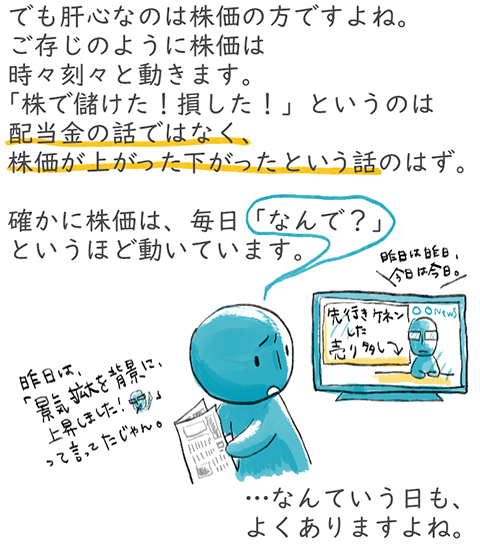 でも肝心なのは株価の方ですよね。
ご存じのように株価は
時々刻々と動きます。
「株で儲けた！損した！」というのは
配当金の話ではなく、
株価が上がった下がったという話のはず。
確かに株価は、毎日「なんで？」
というほど動いています。
昨日は昨日、
今日は今日。
〇〇News
先行きケネン
した
売り多し
昨日は、
「景気拡大を背景に、
上昇しました！」
って言ってたじゃん。
…なんていう日も、
よくありますよね。